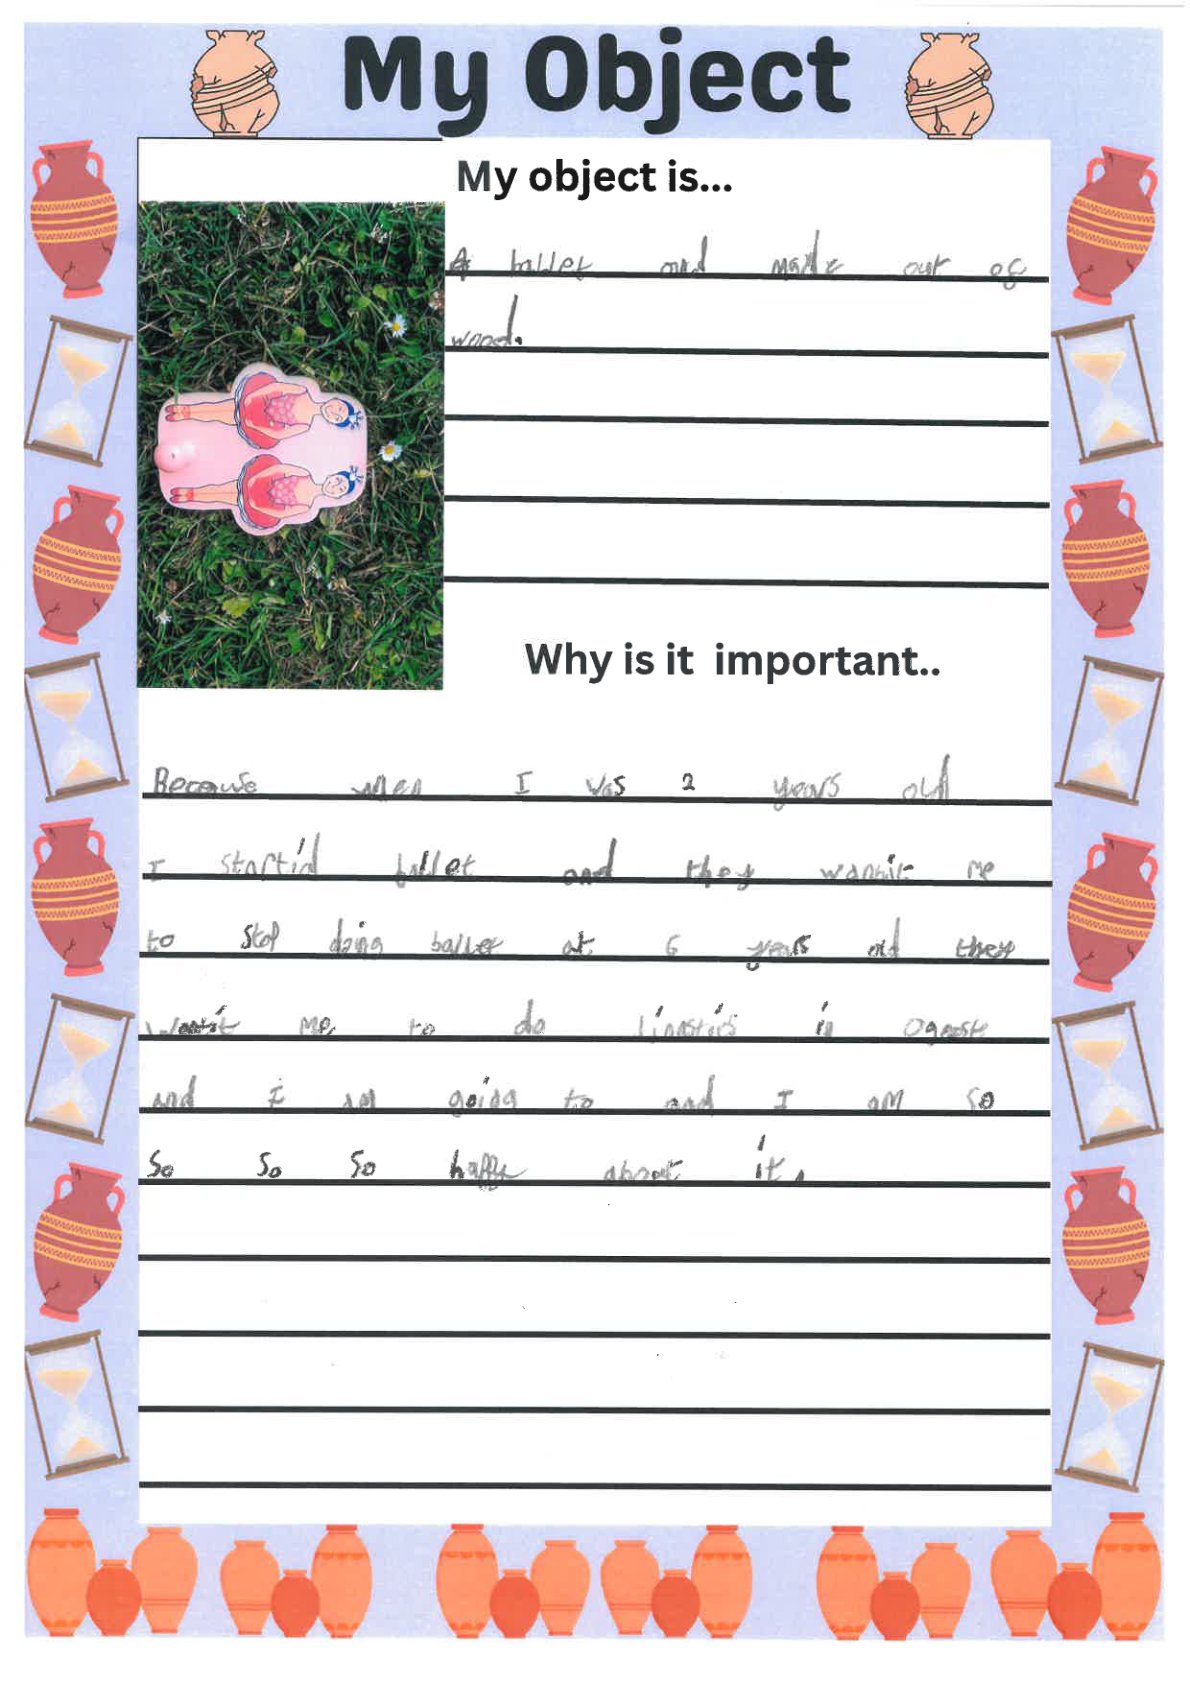 My Object
My object is...
A ballet and made out of
wood.
Why is it important..
Because when I was 2 years old
I startid ballet and they wantit me
to stop doing ballet at 6 years old they
wantit me to do in
and I am going to and I am so
so so so happy about it.